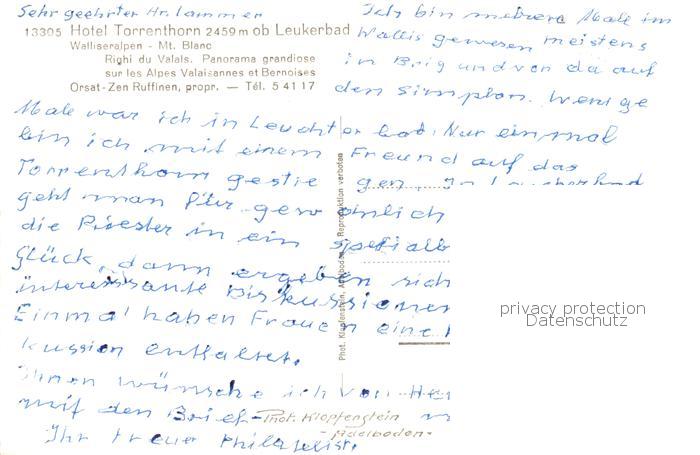 Sehr geehrter Hr. Lammer
13305 Hotel Torrenthorn 2459 m ob Leukerbad
Walliseralpen - Mt. Blanc
Righi du Valais. Panorama grandiose
sur les Alpes Valaisannes et Bernoises
Orsat-Zen Ruffinen, propr. — Tél. 5 41 17
Ich bin mehrere Male im
Wallis gewesen meistens
in Brig und von da auf
den Simplon. Wenige
Male war ich in Leuchter bad. Nur einmal
bin ich mit einem Freund auf das
Torrenthorn gestie gen. In
geht man für gewöhnlich
die Priester in ein
Glück, dann ergeben sich
interessante Diskussionen
Einmal haben Frauen eine
kussion entfaltet.
Ihnen wünsche ich von
mit den Brief-
Ihr treuer Philatelist.
Phot. Klopfenstein
- Adelboden -
Phot. Klopfenstein, Adelboden. Reproduktion verboten
privacy protection
Datenschutz